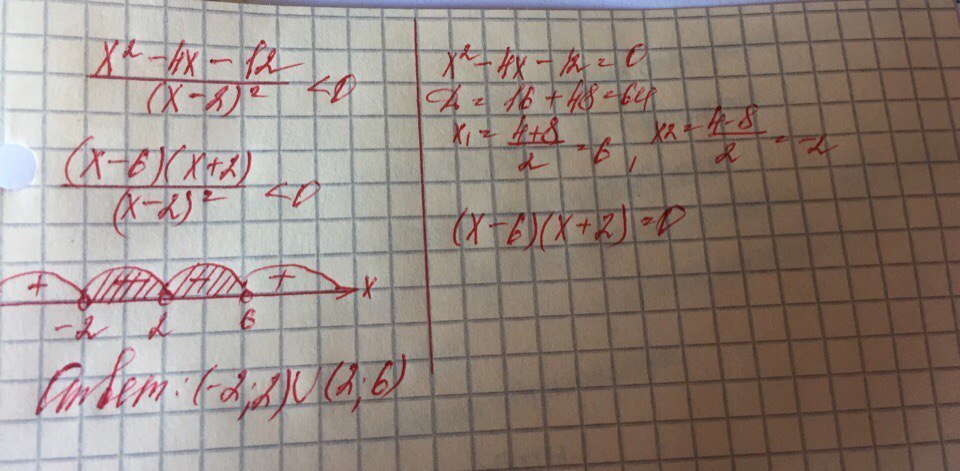 x² - 4x - 12 / (x-2)² < 0
(x-6)(x+2) / (x-2)² < 0
+ - - + x
-2 2 6
Ответ: (-2; 2) ∪ (2; 6)
x² - 4x - 12 = 0
D = 16 + 48 = 64
x₁ = 4+8 / 2 = 6, x₂ = 4-8 / 2 = -2
(x-6)(x+2) = 0